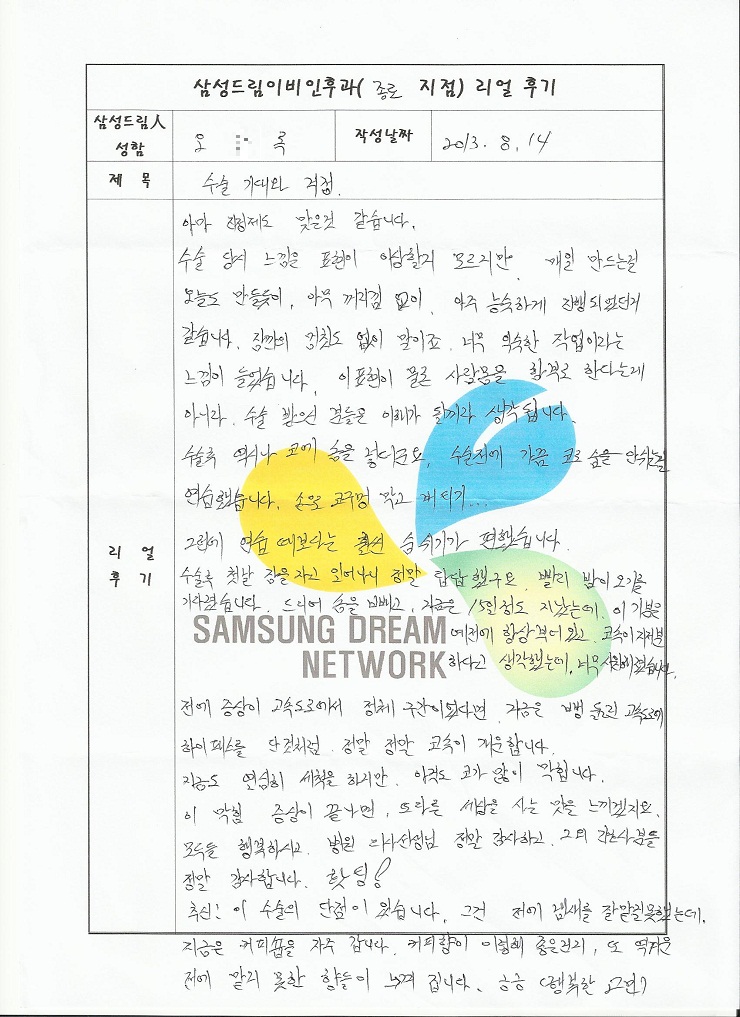 삼성드림이비인후과( 종로 지점) 리얼 후기
삼성드림人 성함
오 록
작성날짜
2013. 8. 14
제 목
수술 기대와 걱정.
리 얼 후 기
아마 진정제도 맞은것 같습니다.
수술 당시 느낌을 표현이 이상할지 모르지만. 매일 만드는걸
오늘도 만들듯이, 아무 꺼리낌 없이. 아주 능숙하게 진행되었던거
같습니다. 잠깐의 멈칫도 없이 말이죠. 너무 익숙한 작업이라는
느낌이 들었습니다. 이표현이 물론 사람몸을 함부로 한다는게
아니라. 수술 받으신 분들은 이해가 될꺼라 생각됩니다.
수술후 역시나 코에 솜을 넣더군요. 수술전에 가끔 코로 숨을 안쉬는걸
연습했습니다. 손으로 콧구멍 막고 버티기...
그런데 연습 때보다는 훨씬 숨쉬기가 편했습니다.
수술후 첫날 잠을자고 일어나니 정말 답답했구요. 빨리 밤이오기를
기다렸습니다. 드디어 솜을 빼고, 지금은 15일정도 지났는데. 이 기분은
예전에 항상 부어있고. 코속이 지저분
하다고 생각했는데. 너무 시원해졌습니다.
SAMSUNG DREAM
NETWORK
전에 증상이 고속도로에서 정체 구간이었다면. 지금은 뻥 뚫린 고속도로에
하이패스를 단것처럼. 정말 정말 코속이 개운합니다.
지금도 열심히 세척을 하지만. 아직도 코가 많이 막힙니다.
이 막힘 증상이 끝나면, 또다른 세상을 사는 맛을 느끼겠지요.
모두들 행복하시고. 병원 의사선생님 정말 감사하고. 그외 간호사분들
정말 감사합니다. 홧팅!
추신! 이 수술의 단점이 있습니다. 그건 전에 냄새를 잘맡질못했는데.
지금은 커피숍을 자주 갑니다. 커피향이 이렇게 좋은건지, 또 역겨운
전에 맡지 못한 향들이 느껴 집니다. 흠흠 (행복한 고민?